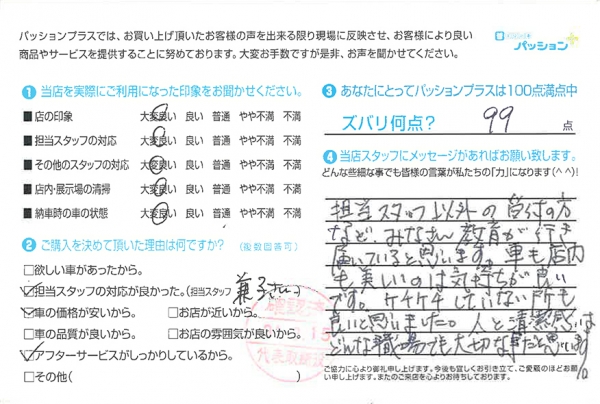 パッションプラスでは、お買い上げ頂いたお客様の声を出来る限り現場に反映させ、お客様により良い
商品やサービスを提供することに努めております。大変お手数ですが是非、お声を聞かせてください。
パッション
① 当店を実際にご利用になった印象をお聞かせください。
■ 店の印象 大変良い 良い 普通 やや不満 不満
■ 担当スタッフの対応 大変良い 良い 普通 やや不満 不満
■ その他のスタッフの対応 大変良い 良い 普通 やや不満 不満
■ 店内・展示場の清掃 大変良い 良い 普通 やや不満 不満
■ 納車時の車の状態 大変良い 良い 普通 やや不満 不満
② ご購入を決めて頂いた理由は何ですか? (複数回答可)
□欲しい車があったから。
☑担当スタッフの対応が良かった。(担当スタッフ 兼子さん)
☑車の価格が安いから。 □お店が近いから。
□車の品質が良いから。 □お店の雰囲気が良いから。
☑アフターサービスがしっかりしているから。
□その他(
③ あなたにとってパッションプラスは100点満点中
ズバリ何点? 99 点
④ 当店スタッフにメッセージがあればお願い致します。
どんな些細な事でも皆様の言葉が私たちの「力」になります(^^)!
担当スタッフ以外の受付の方
など、みなさん教育が行き
届いていると思います。車も店内
も美しいのは気持ちが良い
です。ケチケチしていない所も
良いと思いました。人と清潔感は
どんな職場でも大切な事だと思います
ご協力に心より御礼申し上げます。今後も宜しくお引き立て、ご愛顧のほどお願い申し上げます。またのご来店を心よりお待ちしております。